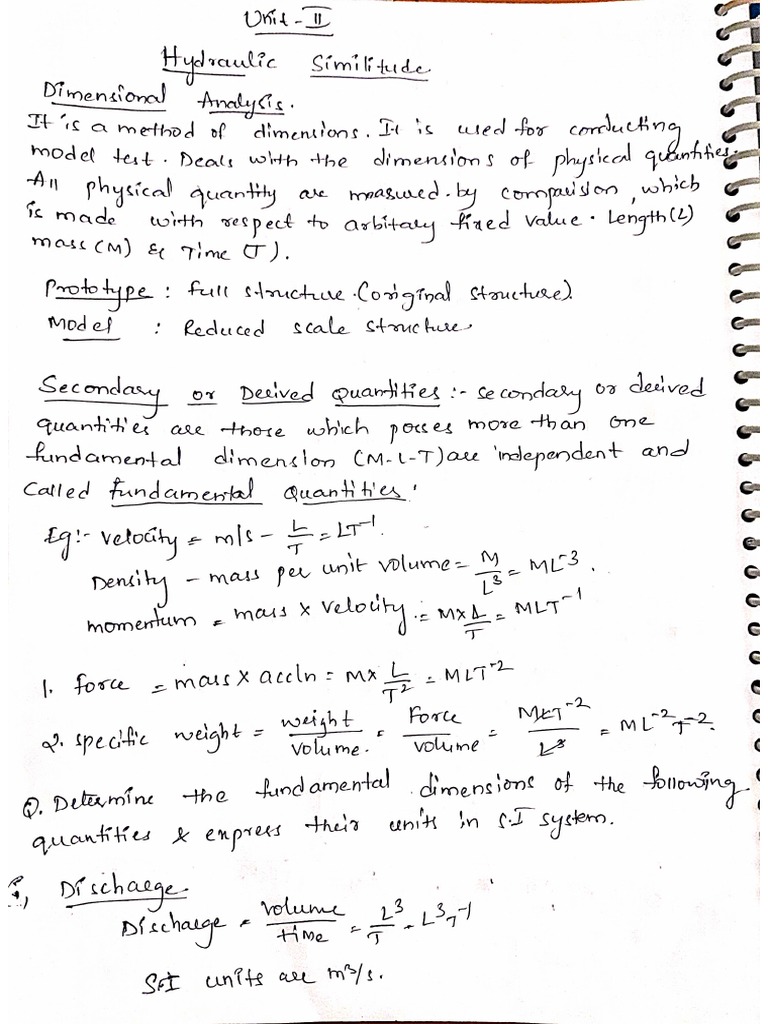 Unit - II
Hydraulic Similitude
Dimensional Analysis.
It is a method of dimensions. It is used for conducting
model test. Deals with the dimensions of physical quantities.
All physical quantity are measured by comparision, which
is made with respect to arbitary fixed value. Length (L)
mass (M) & Time (T).
Prototype : full structure (original structure).
Model : Reduced scale structure.
Secondary or Derived Quantities :- secondary or derived
quantities are those which posses more than one
fundamental dimension (M-L-T) are independent and
called fundamental Quantities.
Eg:- velocity = m/s - L/T = LT⁻¹.
Density - mass per unit volume = M/L³ = ML⁻³.
momentum = mass x velocity = M x L/T = MLT⁻¹
1. force = mass x accln = M x L/T² = MLT⁻²
2. specific weight = weight/volume. = Force/volume = MLT⁻²/L³ = ML⁻²T⁻².
Q. Determine the fundamental dimensions of the following
quantities & express their units in S.I system.
i, Discharge.
Discharge = volume/time = L³/T = L³T⁻¹
S.I units are m³/s.